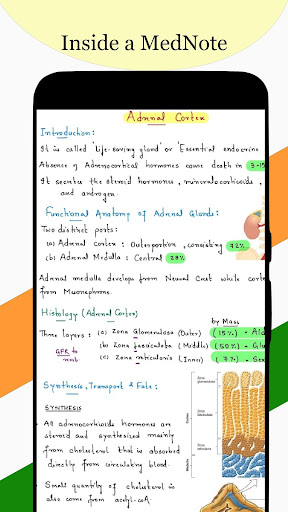 Inside a MedNote
Adrenal Cortex
Introduction :
It is called 'life-saving gland' or 'Essential endocrine
Absence of Adrenocortical hormones cause death in 3-15
It secretes the steroid hormones, mineralocorticoids,
and androgen.
Functional Anatomy of Adrenal Glands :
Two distinct parts :
(a) Adrenal cortex : Outer portion, consisting 72%
(b) Adrenal Medulla : Central 28%
Adrenal medulla develops from Neural Crest while corte
from Mesonephros.
Histology (Adrenal Cortex)
by Mass
Three layers : (a) Zona Glomerulosa (Outer) (15%) - Ald
(b) Zona fasciculata (Middle) (50%) - Glu
(c) Zona reticularis (Inner) (7%) - Sex
GFR to
remb
Synthesis, Transport & Fate :
SYNTHESIS
All adrenocorticoids hormones are
steroid and synthesized mainly
from cholesterol that is absorbed
directly from circulating blood.
Small quantity of cholesterol is
also come from acetyl-coA.
Zona
glomerulosa
Zona
fasciculata
Cortex
Zona
reticularis
Medulla